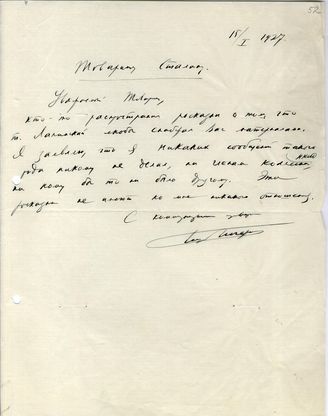 52
15/I 1927.
Товарищу Сталину.
Уважаемый Товарищ,
кто-то распустил рассказы о том, что
т. якобы снабжал Вас материалами.
Я заявляю, что я никаких сообщений такого
рода никому не делал, ни членам коллегии,
ни кому бы то ни было другому. Эти
рассказы не имеют ко мне никакого отношения.
С коммунистическим приветом